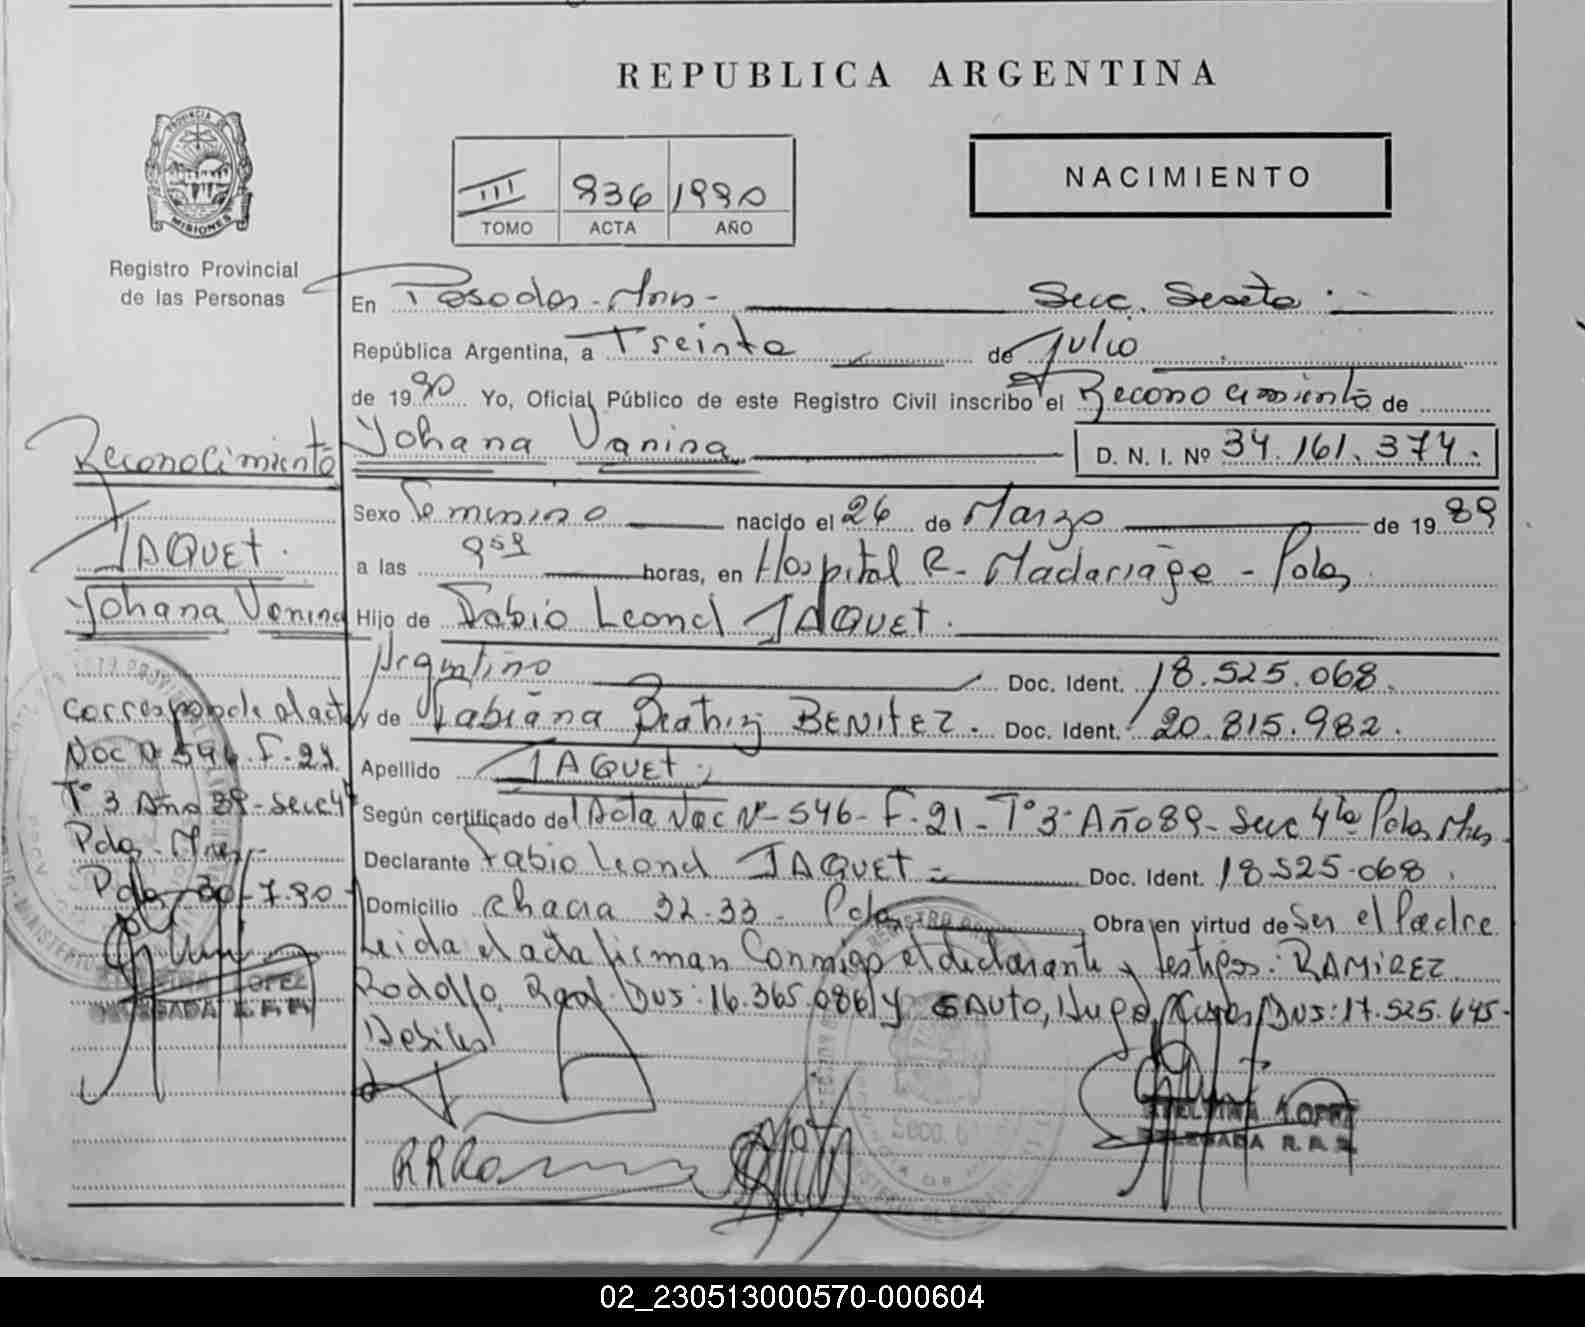 REPUBLICA ARGENTINA
PROVINCIA DE
MISIONES
Registro Provincial
de las Personas
III 936 1990
TOMO ACTA AÑO
NACIMIENTO
En Posadas - Mns - Secc. Sexta
República Argentina, a Treinta de Julio
de 1990 Yo, Oficial Público de este Registro Civil inscribo el Reconocimiento de
Yohana Vanina D. N. I. Nº 34.161.374.
Sexo Femenino nacido el 26 de Marzo de 1989
a las 9 horas, en Hospital R. Madariaga - Pdas.
Hijo de Fabio Leonel JAQUET.
Argentino Doc. Ident. 18.525.068.
y de Fabiana Beatriz BENITEZ. Doc. Ident. 20.815.982.
Apellido JAQUET.
Según certificado del Acta Nac Nº 546 - F. 21 - Tº 3 - Año 89 - Secc 4ta Pdas Mns.
Declarante Fabio Leonel JAQUET = Doc. Ident. 18.525.068.
Domicilio Chacra 32-33 - Pdas Obra en virtud de Ser el Padre
Leida el acta firman Conmigo el declarante y testigos: RAMIREZ
Rodolfo, DNI: 16.365.086 y SAUTO, Hugo DNI: 17.525.645-
Reconocimiento
JAQUET.
Yohana Vanina
Corresponde al acta
Nac Nº 546. F. 21.
Tº 3 Año 89 - Secc 4ta
Pdas - Mnes -
Pdas - 30-7-90
LOPEZ
DELEGADA R.P.P.
Secc. 6
LOPEZ
DELEGADA R.P.P.
02_230513000570-000604